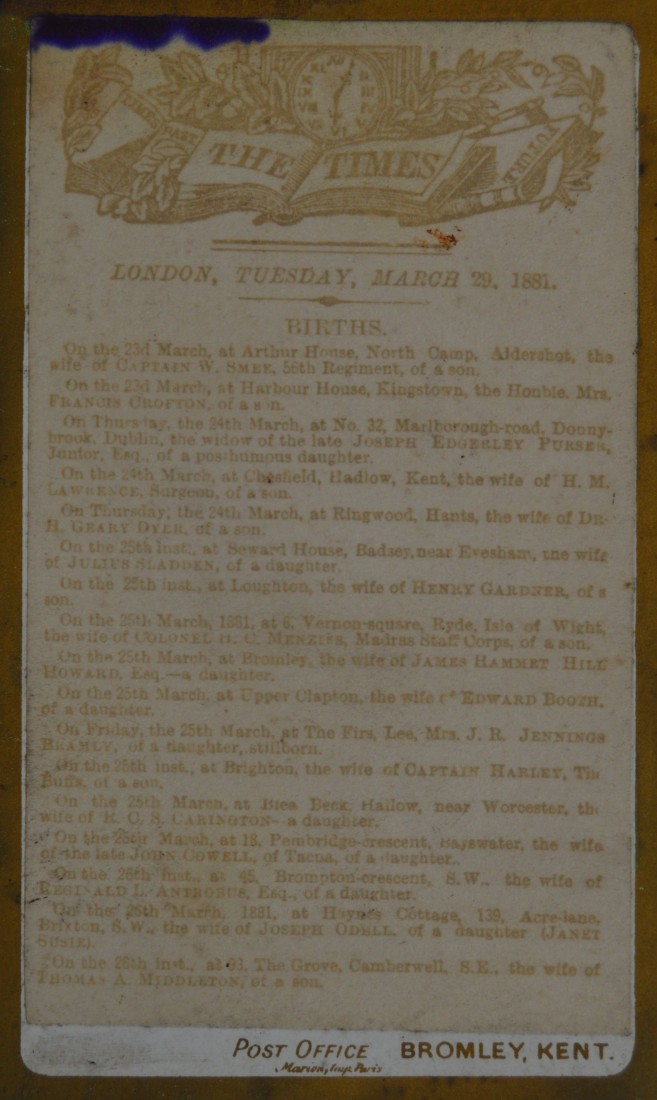 XII
TIMES PAST
THE TIMES
FUTURE
LONDON, TUESDAY, MARCH 29, 1881.
BIRTHS.
On the 23d March, at Arthur House, North Camp, Aldershot, the
wife of CAPTAIN W. SMEE, 56th Regiment, of a son.
On the 23d March, at Harbour House, Kingstown, the Honble. Mrs.
FRANCIS CROFTON, of a son.
On Thursday, the 24th March, at No. 32, Marlborough-road, Donny-
brook, Dublin, the widow of the late JOSEPH EDGERLEY PURSER,
Junior, Esq., of a posthumous daughter.
On the 24th March, at Chesfield, Hadlow, Kent, the wife of H. M.
LAWRENCE, Surgeon, of a son.
On Thursday, the 24th March, at Ringwood, Hants, the wife of DR.
H. GEARY DYER, of a son.
On the 25th inst., at Seward House, Badsey, near Evesham, the wife
of JULIUS SLADDEN, of a daughter.
On the 25th inst., at Loughton, the wife of HENRY GARDNER, of a
son.
On the 25th March, 1881, at 6, Vernon-square, Ryde, Isle of Wight,
the wife of COLONEL H. C. MENZIES, Madras Staff Corps, of a son.
On the 25th March, at Bromley, the wife of JAMES HAMMET HILL
HOWARD, Esq.—a daughter.
On the 25th March, at Upper Clapton, the wife of EDWARD BOOTH,
of a daughter.
On Friday, the 25th March, at The Firs, Lee, Mrs. J. R. JENNINGS
BRAMLY, of a daughter, stillborn.
On the 25th inst., at Brighton, the wife of CAPTAIN HARLEY, The
Buffs, of a son.
On the 25th March, at Brea Beck, Hallow, near Worcester, the
wife of R. C. S. CARINGTON—a daughter.
On the 25th March, at 18, Pembridge-crescent, Bayswater, the wife
of the late JOHN COWELL, of Tacna, of a daughter.
On the 26th inst., at 45, Brompton-crescent, S.W., the wife of
REGINALD L. ANTROBUS, Esq., of a daughter.
On the 26th March, 1881, at Haynes Cottage, 139, Acre-lane,
Brixton, S.W., the wife of JOSEPH ODELL, of a daughter (JANET
SUSIE).
On the 26th inst., at 93, The Grove, Camberwell, S.E., the wife of
THOMAS A. MIDDLETON, of a son.
POST OFFICE BROMLEY, KENT.
Marion, Imp. Paris